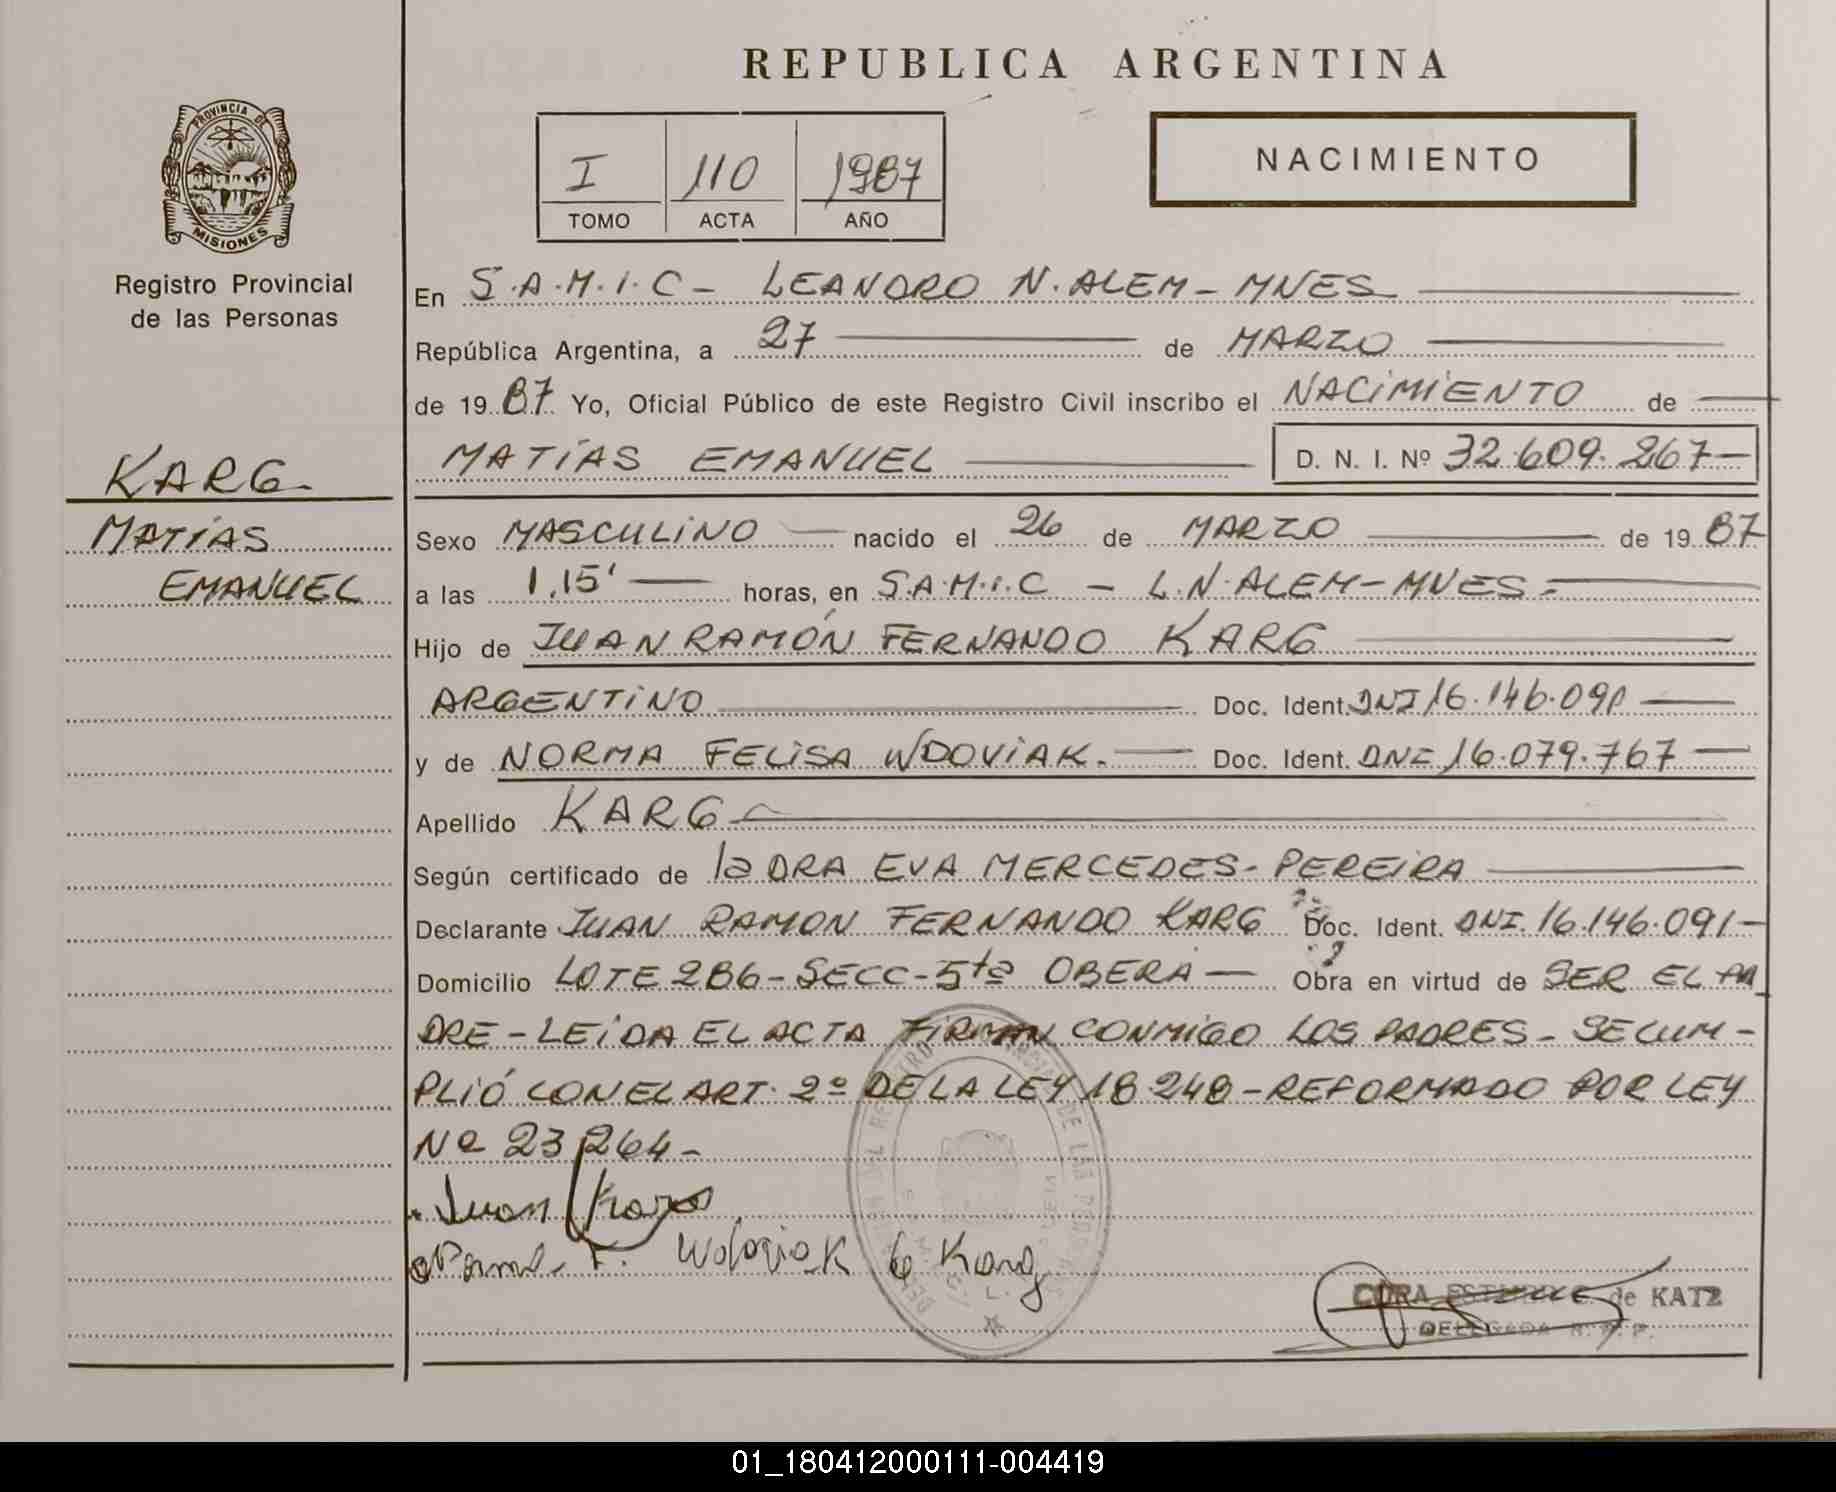 REPUBLICA ARGENTINA
PROVINCIA DE
MISIONES
Registro Provincial
de las Personas
I 110 1987
TOMO ACTA AÑO
NACIMIENTO
En S.A.M.I.C - LEANDRO N. ALEM - MNES
República Argentina, a 27 de MARZO
de 1987 Yo, Oficial Público de este Registro Civil inscribo el NACIMIENTO de
MATÍAS EMANUEL D. N. I. Nº 32.609.267-
KARG-
MATÍAS
EMANUEL
Sexo MASCULINO nacido el 26 de MARZO de 1987
a las 1.15' horas, en S.A.M.I.C - L.N. ALEM - MNES-
Hijo de JUAN RAMÓN FERNANDO KARG
ARGENTINO Doc. Ident. DNI 16.146.091
y de NORMA FELISA WDOVIAK.- Doc. Ident. DNI 16.079.767
Apellido KARG
Según certificado de la DRA EVA MERCEDES - PEREIRA
Declarante JUAN RAMON FERNANDO KARG Doc. Ident. DNI. 16.146.091-
Domicilio LOTE 286 - SECC - 5ta OBERA Obra en virtud de SER EL PA
DRE - LEÍDA EL ACTA FIRMAN CONMIGO LOS PADRES - SE CUM-
PLIÓ CON EL ART. 2º DE LA LEY 18248 - REFORMADO POR LEY
Nº 23264-
Juan Karg
F. Wdoviak de Karg
CORA de KATZ
DELEGADA R. P. P.
01_180412000111-004419